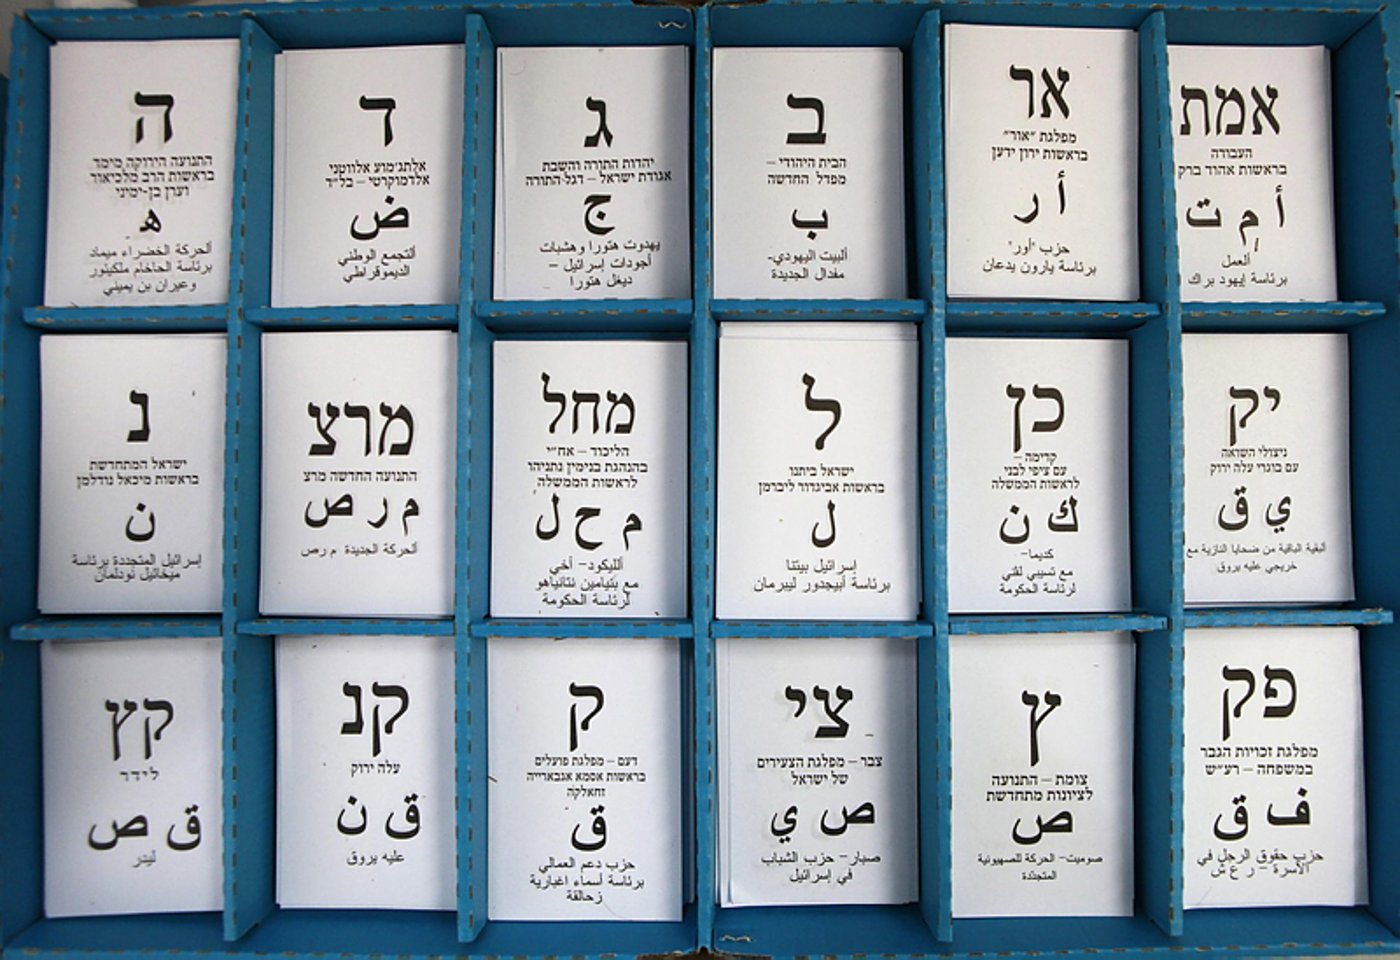 אמת
העבודה
בראשות אהוד ברק
أ م ت
ألعمل
برئاسة إيهود براك
אר
מפלגת "אור"
בראשות ירון ידען
أ ر
حزب "أور"
برئاسة يارون يدعان
ב
הבית היהודי –
מפדל החדשה
ب
ألبيت اليهودي-
مفدال الجديدة
ג
יהדות התורה והשבת
אגודת ישראל – דגל התורה
ج
يهدوت هتورا وهشبات
أجودات إسرائيل –
ديغل هتورا
ד
אלתג'מוע אלווטני
אלדמוקרטי – בל"ד
ض
ألتجمع الوطني
الديموقراطي
ה
התנועה הירוקה מימד
בראשות הרב מלכיאור
וערן בן-ימיני
ه
ألحركة الخضراء ميماد
برئاسة الحاخام ملكيئور
وعيران بن يميني
יק
ניצולי השואה
עם בוגרי עלה ירוק
ي ق
ألبقية الباقية من ضحايا النازية مع
خريجي عليه يروق
כן
קדימה –
עם ציפי לבני
לראשות הממשלה
ك ن
كديما-
مع تسيبي لفني
لرئاسة الحكومة
ל
ישראל ביתנו
בראשות אביגדור ליברמן
ل
إسرائيل بيتنا
برئاسة أبيجدور ليبرمان
מחל
הליכוד – אח"י
בהנהגת בנימין נתניהו
לראשות הממשלה
م ح ل
ألليكود- أخي
مع بنيامين نتانياهو
لرئاسة الحكومة
מרצ
התנועה החדשה מרצ
م ر ص
ألحركة الجديدة م رص
נ
ישראל המתחדשת
בראשות מיכאל נודלמן
ن
إسرائيل المتجددة برئاسة
ميخائيل نودلمان
פק
מפלגת זכויות הגבר
במשפחה – רע"ש
ف ق
حزب حقوق الرجل في
الأسرة – ر ع ش
ץ
צומת – התנועה
לציונות מתחדשת
ص
صوميت- الحركة للصهيونية
المتجددة
צי
צבר – מפלגת הצעירים
של ישראל
ص ي
صبار- حزب الشباب
في إسرائيل
ק
דעם – מפלגת פועלים
בראשות אסמא אגבארייה
זחאלקה
ق
حزب دعم العمالي
برئاسة أسماء اغبارية
زحالقة
קנ
עלה ירוק
ق ن
عليه يروق
קץ
לידר
ق ص
ليدر